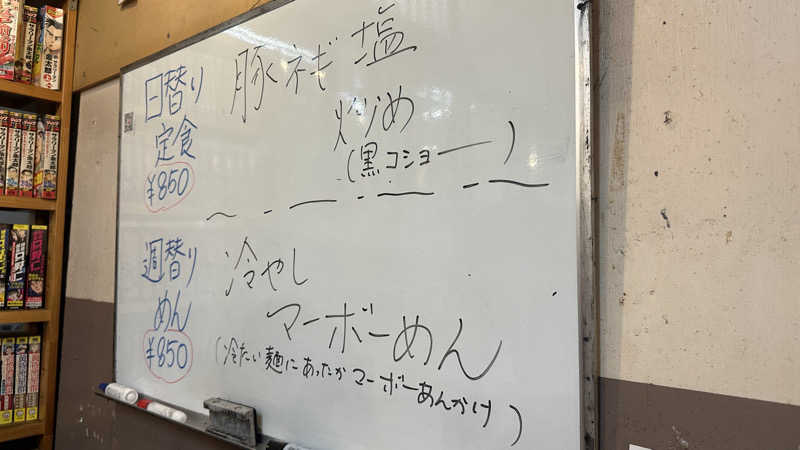 日替り
定食
¥850
豚ネギ塩
炒め
(黒コショー)
週替り
めん
¥850
冷やし
マーボーめん
(冷たい麺にあったかマーボーあんかけ)